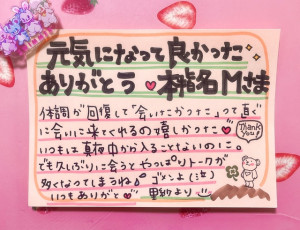 元気になって良かった
ありがとう 椎名Mさま
体調が回復して「会いたかった」って直ぐ
に会いに来てくれるの嬉しかった
Thank you!
いつもは真夜中か入ることないのに。
でも久しぶりに会うとやっぱりトークが
多くなってしまうね ゴメンよ(泣)
いつもありがと 里紗より